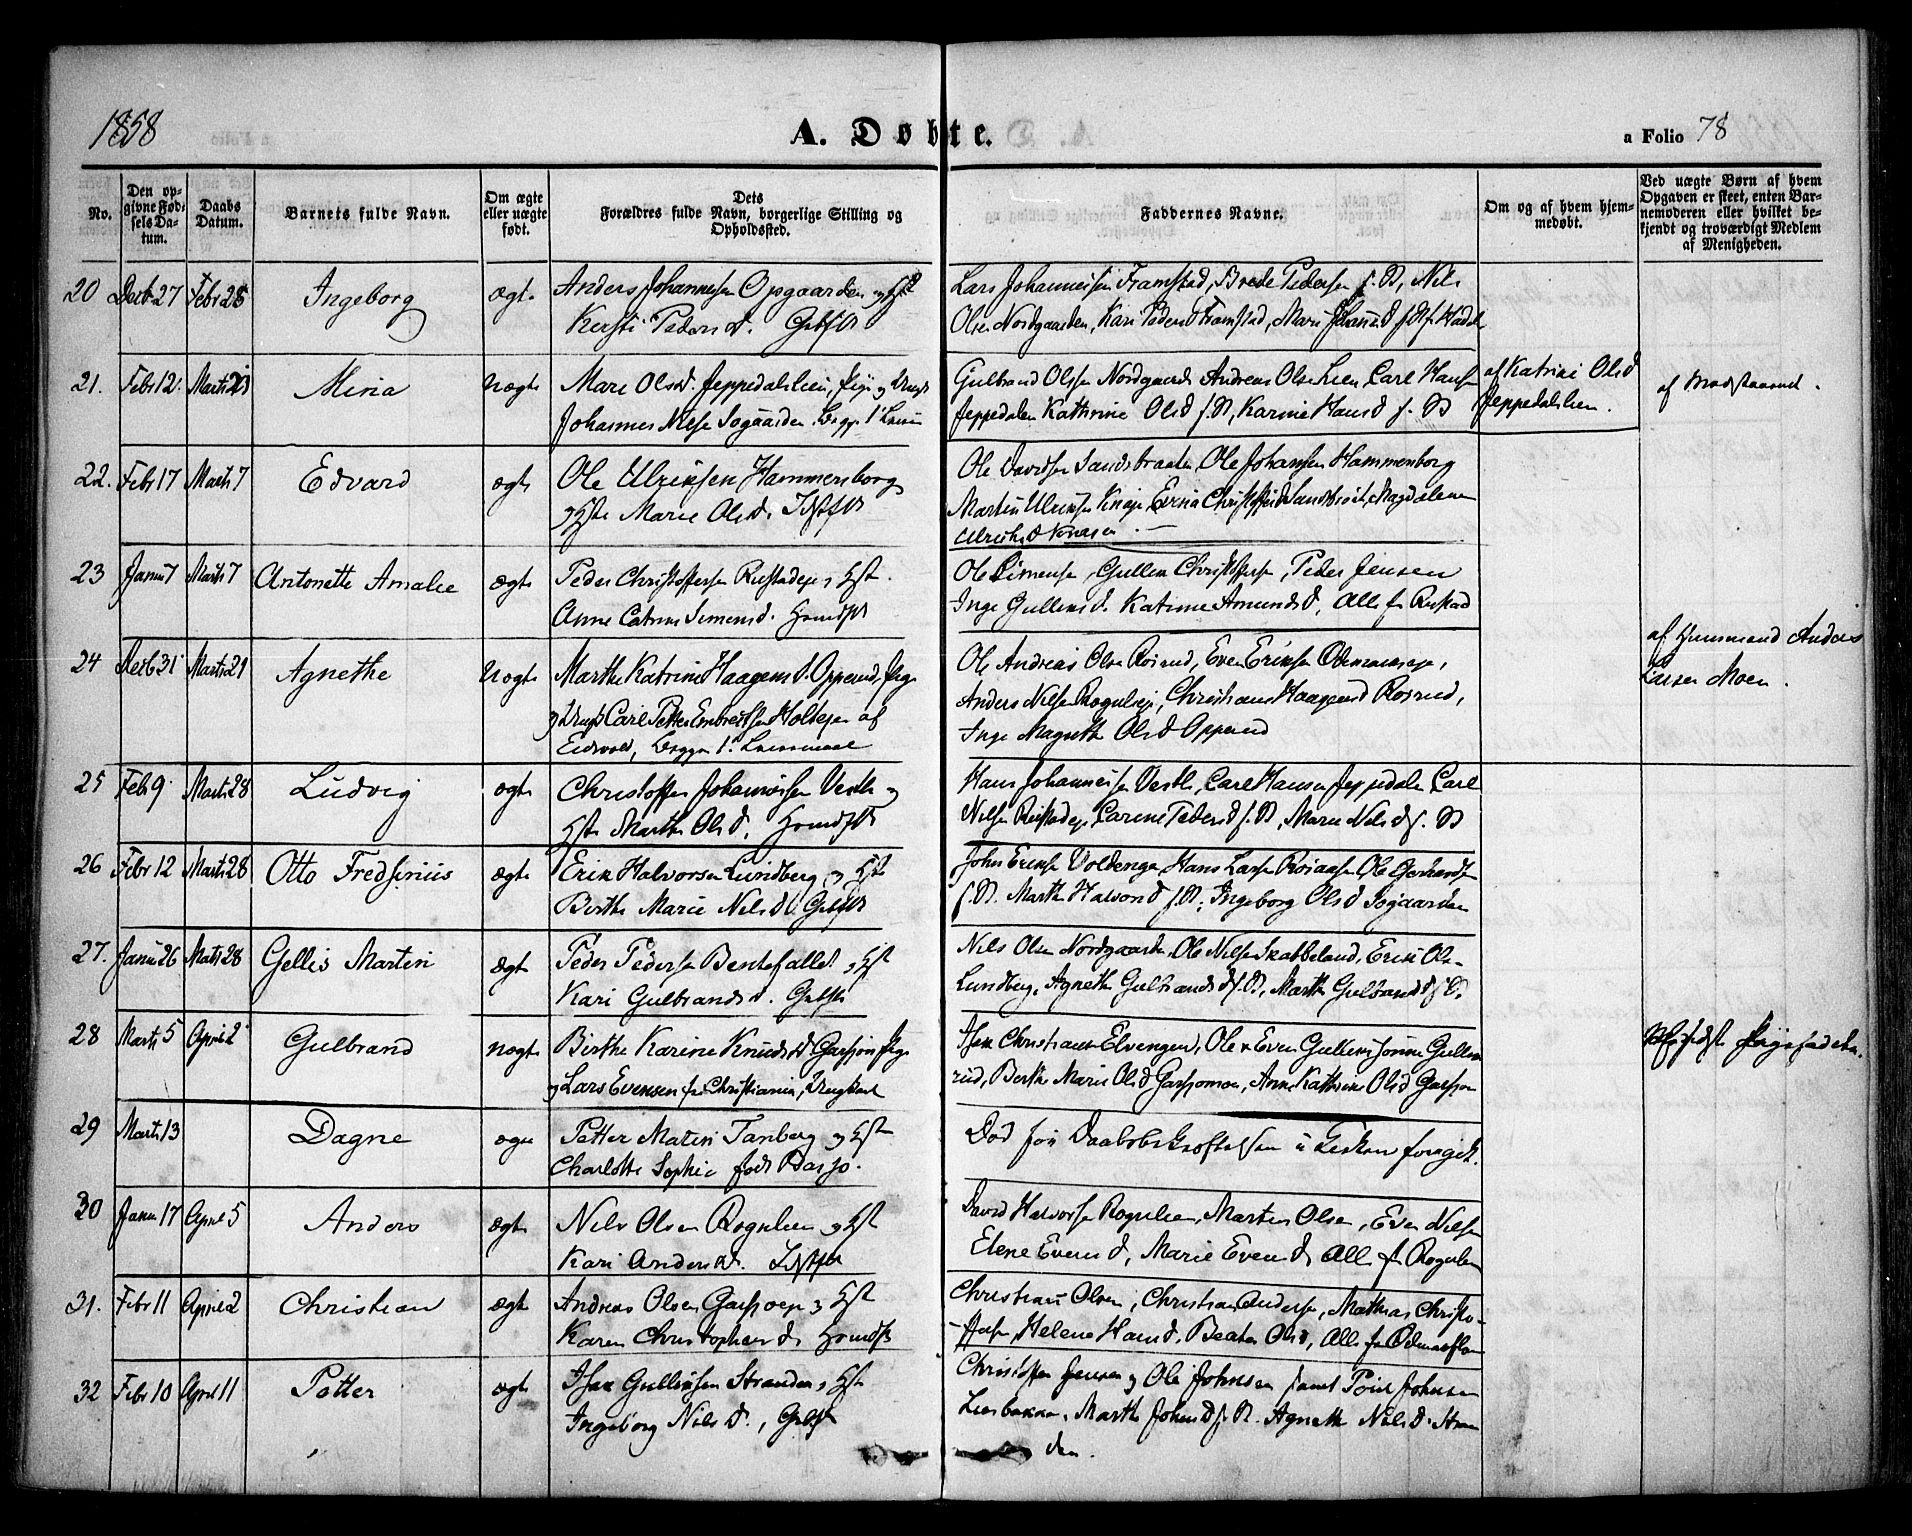 1858
A. Døbte.
a Folio 78
No.
Den op-
givne Fød-
sels Da-
tum.
Daabs
Datum.
Barnets fulde Navn.
Om ægte
eller uægte
født.
Dets
Forældres fulde Navn, borgerlige Stilling og
Opholdssted.
Faddernes Navne.
Om og af hvem hjem-
medøbt.
Ved uægte Børn af hvem
Opgaven er skeet, enten Bar-
nemoderen eller hvilket be-
kjendt og troværdigt Medlem
af Menigheden.
20 Decb 27 Febr 28 Ingeborg ægte Anders Johannesen Opgaarden og Hst
Kersti Peders D.
Lars Johannesen Framstad, Brede Pedersen f. D, Nils
Olsen Nordgaarden, Kari Peders D Framstad, Mari
21. Febr 12. Marts Mina Uægte Mari Olsd. Jeppedalslien, Pige og Ungk
Johannes Nilsen Sogaarden. Begge 1ste
Gulbrand Olsen Nordgaards Andreas Olsen Lien, Carl Hansen
Jeppedalen Kathrine Olsd f. D, Karine Hans d f. D
af Katrine Olsd
Jeppedalslien.
af Modstaaende.
22. Febr 17 Marts 7 Edvard ægte Ole Ulriksen Hammersborg
og Hst Marie Olsd.
Ole Davidsen Sandsbraaten, Ole Johansen Hammersborg
Martin Ulriksen Magdalena
Ulriks d
23 Janu 7 Marts 7 Antonette Amalie ægte Peder Christoffersen Rustadeje og Hst.
Anne Catrine Simensd.
Ole Simensen, Gullem Christoffersen, Peder Jensen
Inge Gullems d. Katrine Amunds d, Alle fr Rustad
24 Decb 31 Marts 21 Agnethe Uægte Marthe Katrine Haagens d. Opperud, Pige
og Ungk Carl Petter Embretsen Holteje af
Eidsvold, Begge 1ste Leiermaal
Ole Andreas Olsen Rosrud, Even Eriksen
Anders Nilsen Christiane Haagensd Rosrud,
Inge Magrethe Ols D Opperud
af Huusmand Anders
Larsen Moen.
25 Feb 9. Marts 28 Ludvig ægte Christoffer Johannesen Vestli og
Hst Marthe Ols d.
Hans Johannesen Vestli, Carl Hansen Jeppedalen Carl
Nilsen Rustadeje Carine Peders d f. D, Marie Nils d f. D
26 Febr 12 Marts 28 Otto Fredserius ægte Erik Halvorsen Lundberg og Hst
Birthe Marie Nils d.
John Eriksen Voldenga, Hans Larsen Rosaasen Ole
f. D. Marthe Halvors d f. D, Ingeborg Ols d Sogaarden
27. Janu 26 Marts 28 Gellis Martin ægte Peder Pedersen Bentefallet og Hst
Kari Gulbrands d.
Nils Olsen Nordgaarden, Ole Nilsen Skabbeland, Erik Ols-
Lundberg, Agnethe Gulbrands d f. D, Marthe Gulbrands d f. D.
28 Marts 5 April 2 Gulbrand Uægte Birthe Karine Knuds d Garsjøen Pige
og Lars Evensen fra Christiania, Ungkarl
Isak Christiansen Elvengen, Ole & Even Gullemssønner Gullem
rud, Berthe Marie Olsd Anne Kathrine Olsd
Pigefaderen.
29 Marts 13 Dagne ægte Petter Martin Tanberg og Hst
Charlotte Sophie født
Død før Daabsbekræftelsen i Kirken foregik.
30 Janu 17 April 5 Anders ægte Nils Olsen Rognlien og Hst
Kari Anders d.
David Halvorsen Rognlien, Martin Olsen, Even Nilsen
Elene Evens d, Marie Evens d, Alle fr Rognlien
31. Febr 11 April 2 Christian ægte Andreas Olsen og Hst
Karen Christophers d.
Christian Olsen, Christian Andersen, Mathias Christo-
-ffersen, Helene Hansd. Beate Olsd, Alle fr
32 Febr 10 April 11 Petter ægte Isak Gullemsen Stranden og Hst
Ingeborg Nils d.,
Christoffer Jensen og Ole Johnsen samt Poul Johnsen
Marthe Johns d f. D. Agnethe Nils d. Stran
den.